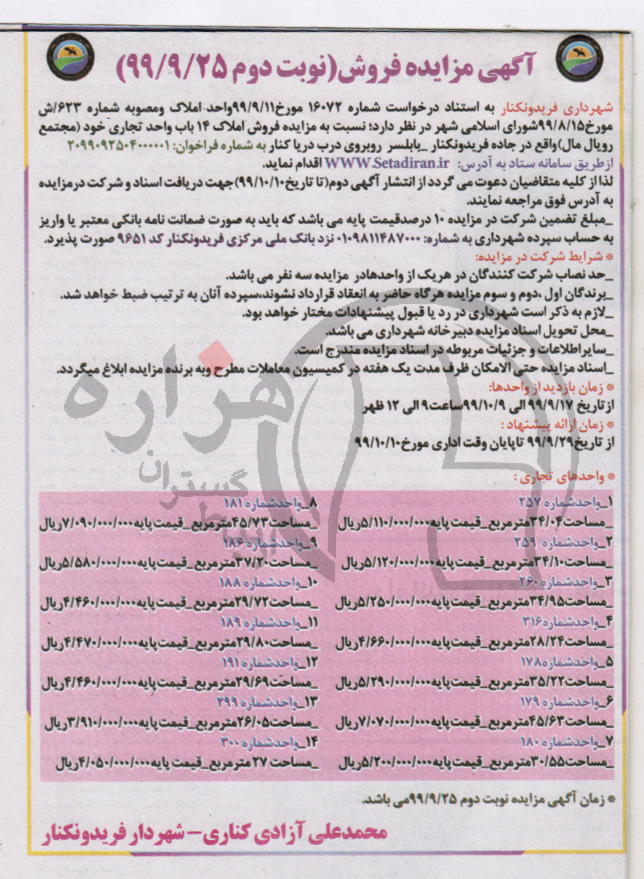 آگهی مزایده فروش(نوبت دوم ۹۹/۹/۲۵)
شهرداری فریدونکنار به استناد درخواست شماره ۱۶۰۷۲ مورخ۹۹/۹/۱۱واحد املاک ومصوبه شماره ۶۲۳/ش
مورخ۹۹/۸/۱۵شورای اسلامی شهر در نظر دارد؛ نسبت به مزایده فروش املاک ۱۴ باب واحد تجاری خود (مجتمع
رویال مال)واقع در جاده فریدونکنار _بابلسر روبروی درب دریا کنار به شماره فراخوان: ۲۰۹۹۰۹۲۵۰۴۰۰۰۰۰۱
ازطریق سامانه ستاد به آدرس: WWW.Setadiran.ir اقدام نماید.
لذا از کلیه متقاضیان دعوت می گردد از انتشار آگهی دوم(تا تاریخ۹۹/۱۰/۱۰)جهت دریافت اسناد و شرکت درمزایده
به آدرس فوق مراجعه نمایند.
_مبلغ تضمین شرکت در مزایده ۱۰ درصدقیمت پایه می باشد که باید به صورت ضمانت نامه بانکی معتبر یا واریز
به حساب سپرده شهرداری به شماره: ۰۱۰۹۸۱۱۴۸۷۰۰۰ نزد بانک ملی مرکزی فریدونکنار کد ۹۶۵۱ صورت پذیرد.
* شرایط شرکت در مزایده:
_حد نصاب شرکت کنندگان در هریک از واحدهادر مزایده سه نفر می باشد.
_برندگان اول ،دوم و سوم مزایده هرگاه حاضر به انعقاد قرارداد نشوند،سپرده آنان به ترتیب ضبط خواهد شد.
_لازم به ذکر است شهرداری در رد یا قبول پیشنهادات مختار خواهد بود.
_محل تحویل اسناد مزایده دبیرخانه شهرداری می باشد.
_سایراطلاعات و جزئیات مربوطه در اسناد مزایده مندرج است.
_اسناد مزایده حتی الامکان ظرف مدت یک هفته در کمیسیون معاملات مطرح وبه برنده مزایده ابلاغ میگردد.
* زمان بازدید از واحدها:
ازتاریخ ۹۹/۹/۱۷ الی ۹۹/۱۰/۹ساعت۹ الی ۱۲ ظهر
* زمان ارائه پیشنهاد :
از تاریخ۹۹/۹/۲۹ تاپایان وقت اداری مورخ۹۹/۱۰/۱۰
* واحدهای تجاری :
۱_واحدشماره ۲۵۷
_مساحت۳۴/۰۴مترمربع_قیمت پایه۵/۱۱۰/۰۰۰/۰۰۰ریال
۲_واحدشماره ۲۵۹
_مساحت۳۴/۱۰مترمربع_قیمت پایه۵/۱۲۰/۰۰۰/۰۰۰ریال
۳_واحدشماره ۲۶۰
_مساحت۳۴/۹۵مترمربع_قیمت پایه۵/۲۵۰/۰۰۰/۰۰۰ریال
۴_واحدشماره۳۱۶
_مساحت۲۸/۲۴مترمربع_قیمت پایه۴/۶۶۰/۰۰۰/۰۰۰ریال
۵_واحدشماره۱۷۸
_مساحت۳۵/۲۲مترمربع_قیمت پایه۵/۲۹۰/۰۰۰/۰۰۰ریال
۶_واحدشماره ۱۷۹
_مساحت۴۵/۶۳مترمربع_قیمت پایه۷/۰۷۰/۰۰۰/۰۰۰ریال
۷_واحدشماره ۱۸۰
_مساحت۳۰/۵۵مترمربع_قیمت پایه۵/۲۰۰/۰۰۰/۰۰۰ریال
۸_واحدشماره ۱۸۱
_مساحت۴۵/۷۳مترمربع_قیمت پایه۷/۰۹۰/۰۰۰/۰۰۰ریال
۹_واحدشماره ۱۸۶
_مساحت۳۷/۲۰مترمربع_قیمت پایه۵/۵۸۰/۰۰۰/۰۰۰ریال
۱۰_واحدشماره ۱۸۸
_مساحت۲۹/۷۲مترمربع_قیمت پایه۴/۴۶۰/۰۰۰/۰۰۰ریال
۱۱_واحدشماره ۱۸۹
_مساحت۲۹/۸۰مترمربع_قیمت پایه۴/۴۷۰/۰۰۰/۰۰۰ریال
۱۲_واحدشماره ۱۹۱
_مساحت۲۹/۶۹مترمربع_قیمت پایه۴/۴۶۰/۰۰۰/۰۰۰ریال
۱۳_واحدشماره ۲۹۹
_مساحت۲۶/۰۵مترمربع_قیمت پایه۳/۹۱۰/۰۰۰/۰۰۰ریال
۱۴_واحدشماره ۳۰۰
_مساحت ۲۷ مترمربع_قیمت پایه۴/۰۵۰/۰۰۰/۰۰۰ریال
* زمان آگهی مزایده نوبت دوم ۹۹/۹/۲۵می باشد.
محمدعلی آزادی کناری-شهردار فریدونکنار
هزاره
گستران